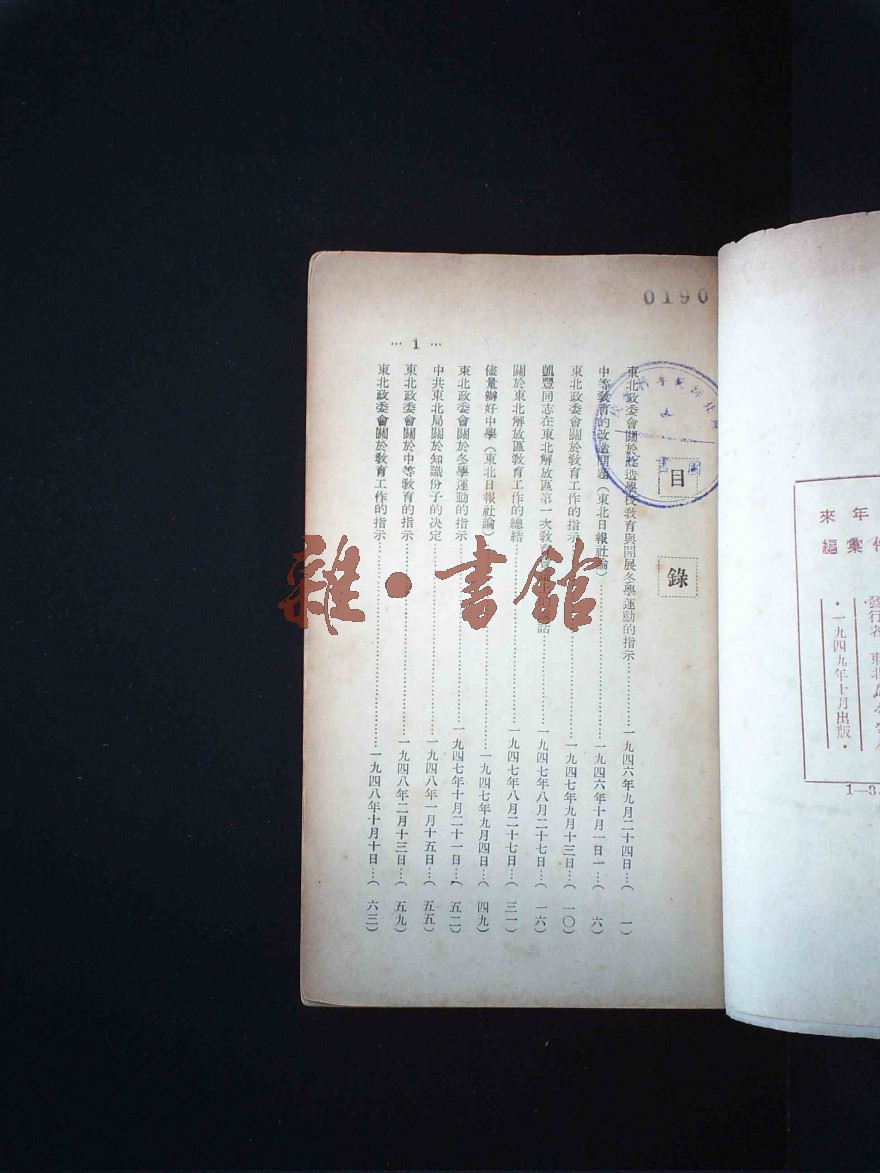 0190
目錄
東北政委會關於改造學校教育與開展冬學運動的指示…………一九四六年九月二十四日…( 一)
中等教育的改造問題(東北日報社論)…………一九四六年十月一日…( 六)
東北政委會關於教育工作的指示…………一九四七年九月十三日…( 一〇)
凱豐同志在東北解放區第一次教育…話…………一九四七年八月二十七日…( 一六)
關於東北解放區教育工作的總結…………一九四七年八月二十七日…( 三一)
儘量辦好中學(東北日報社論)…………一九四七年九月四日…( 四九)
東北政委會關於冬學運動的指示…………一九四七年十月二十一日…( 五二)
中共東北局關於知識份子的决定…………一九四八年一月十五日…( 五五)
東北政委會關於中等教育的指示…………一九四八年二月十三日…( 五九)
東北政委會關於教育工作的指示…………一九四八年十月十日…( 六三)
… 1 …
年來
彙編
發行者 東北
·一九四九年十月出版·
雜·書館